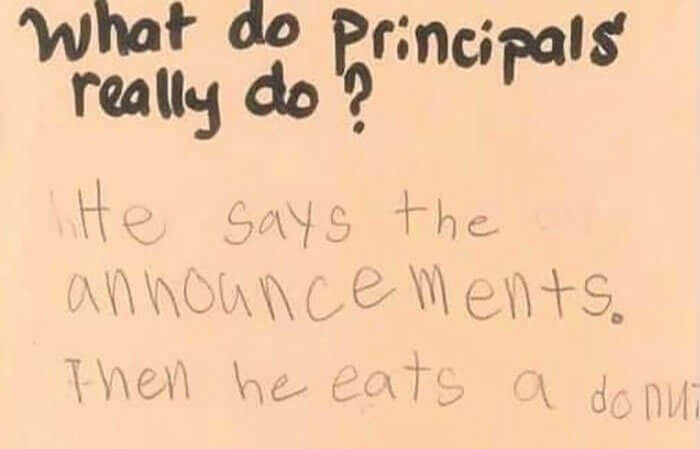 What do Principals
really do?
He says the
announcements.
Then he eats a donut